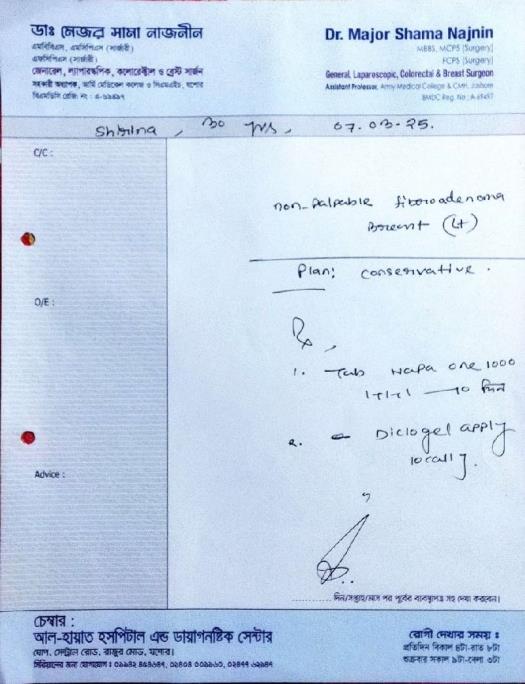 ডাঃ মেজর সামা নাজনীন
এমবিবিএস, এমসিপিএস (সার্জারী)
এফসিপিএস (সার্জারী)
জেনারেল, ল্যাপারস্কপিক, কলোরেক্টাল ও ব্রেস্ট সার্জন
সহকারী অধ্যাপক, আর্মি মেডিকেল কলেজ ও সিএমএইচ, যশোর
Dr. Major Shama Najnin
MBBS, MCPS (Surgery)
FCPS (Surgery)
General, Laparoscopic, Colorectal & Breast Surgeon
Assistant Professor, Army Medical College & CMH, Jashore
30 yrs, 07.03.25.
C/C :
non-palpable fibroadenoma
Breast (Lt)
Plan: conservative.
O/E :
Rx,
1. Tab Napa one 1000
1+1+1 — 10 দিন
2. Diclogel apply
locally.
Advice :
দিন/সপ্তাহ/মাস পর পূর্বের ব্যবস্থাপত্র সহ দেখা করবেন।
চেম্বার :
আল-হায়াত হসপিটাল এন্ড ডায়াগনষ্টিক সেন্টার
রোগী দেখার সময় :
প্রতিদিন বিকাল ৪টা-রাত ৮টা
শুক্রবার সকাল ৯টা-বেলা ৩টা